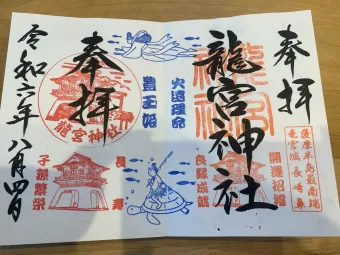 奉拝
龍宮神社
薩摩半島最南端
竜宮城 長崎鼻
開運招福
良縁成就
火遠理命
豊玉姫
長寿
奉拝
龍宮神社
子孫繁栄
令和六年八月四日